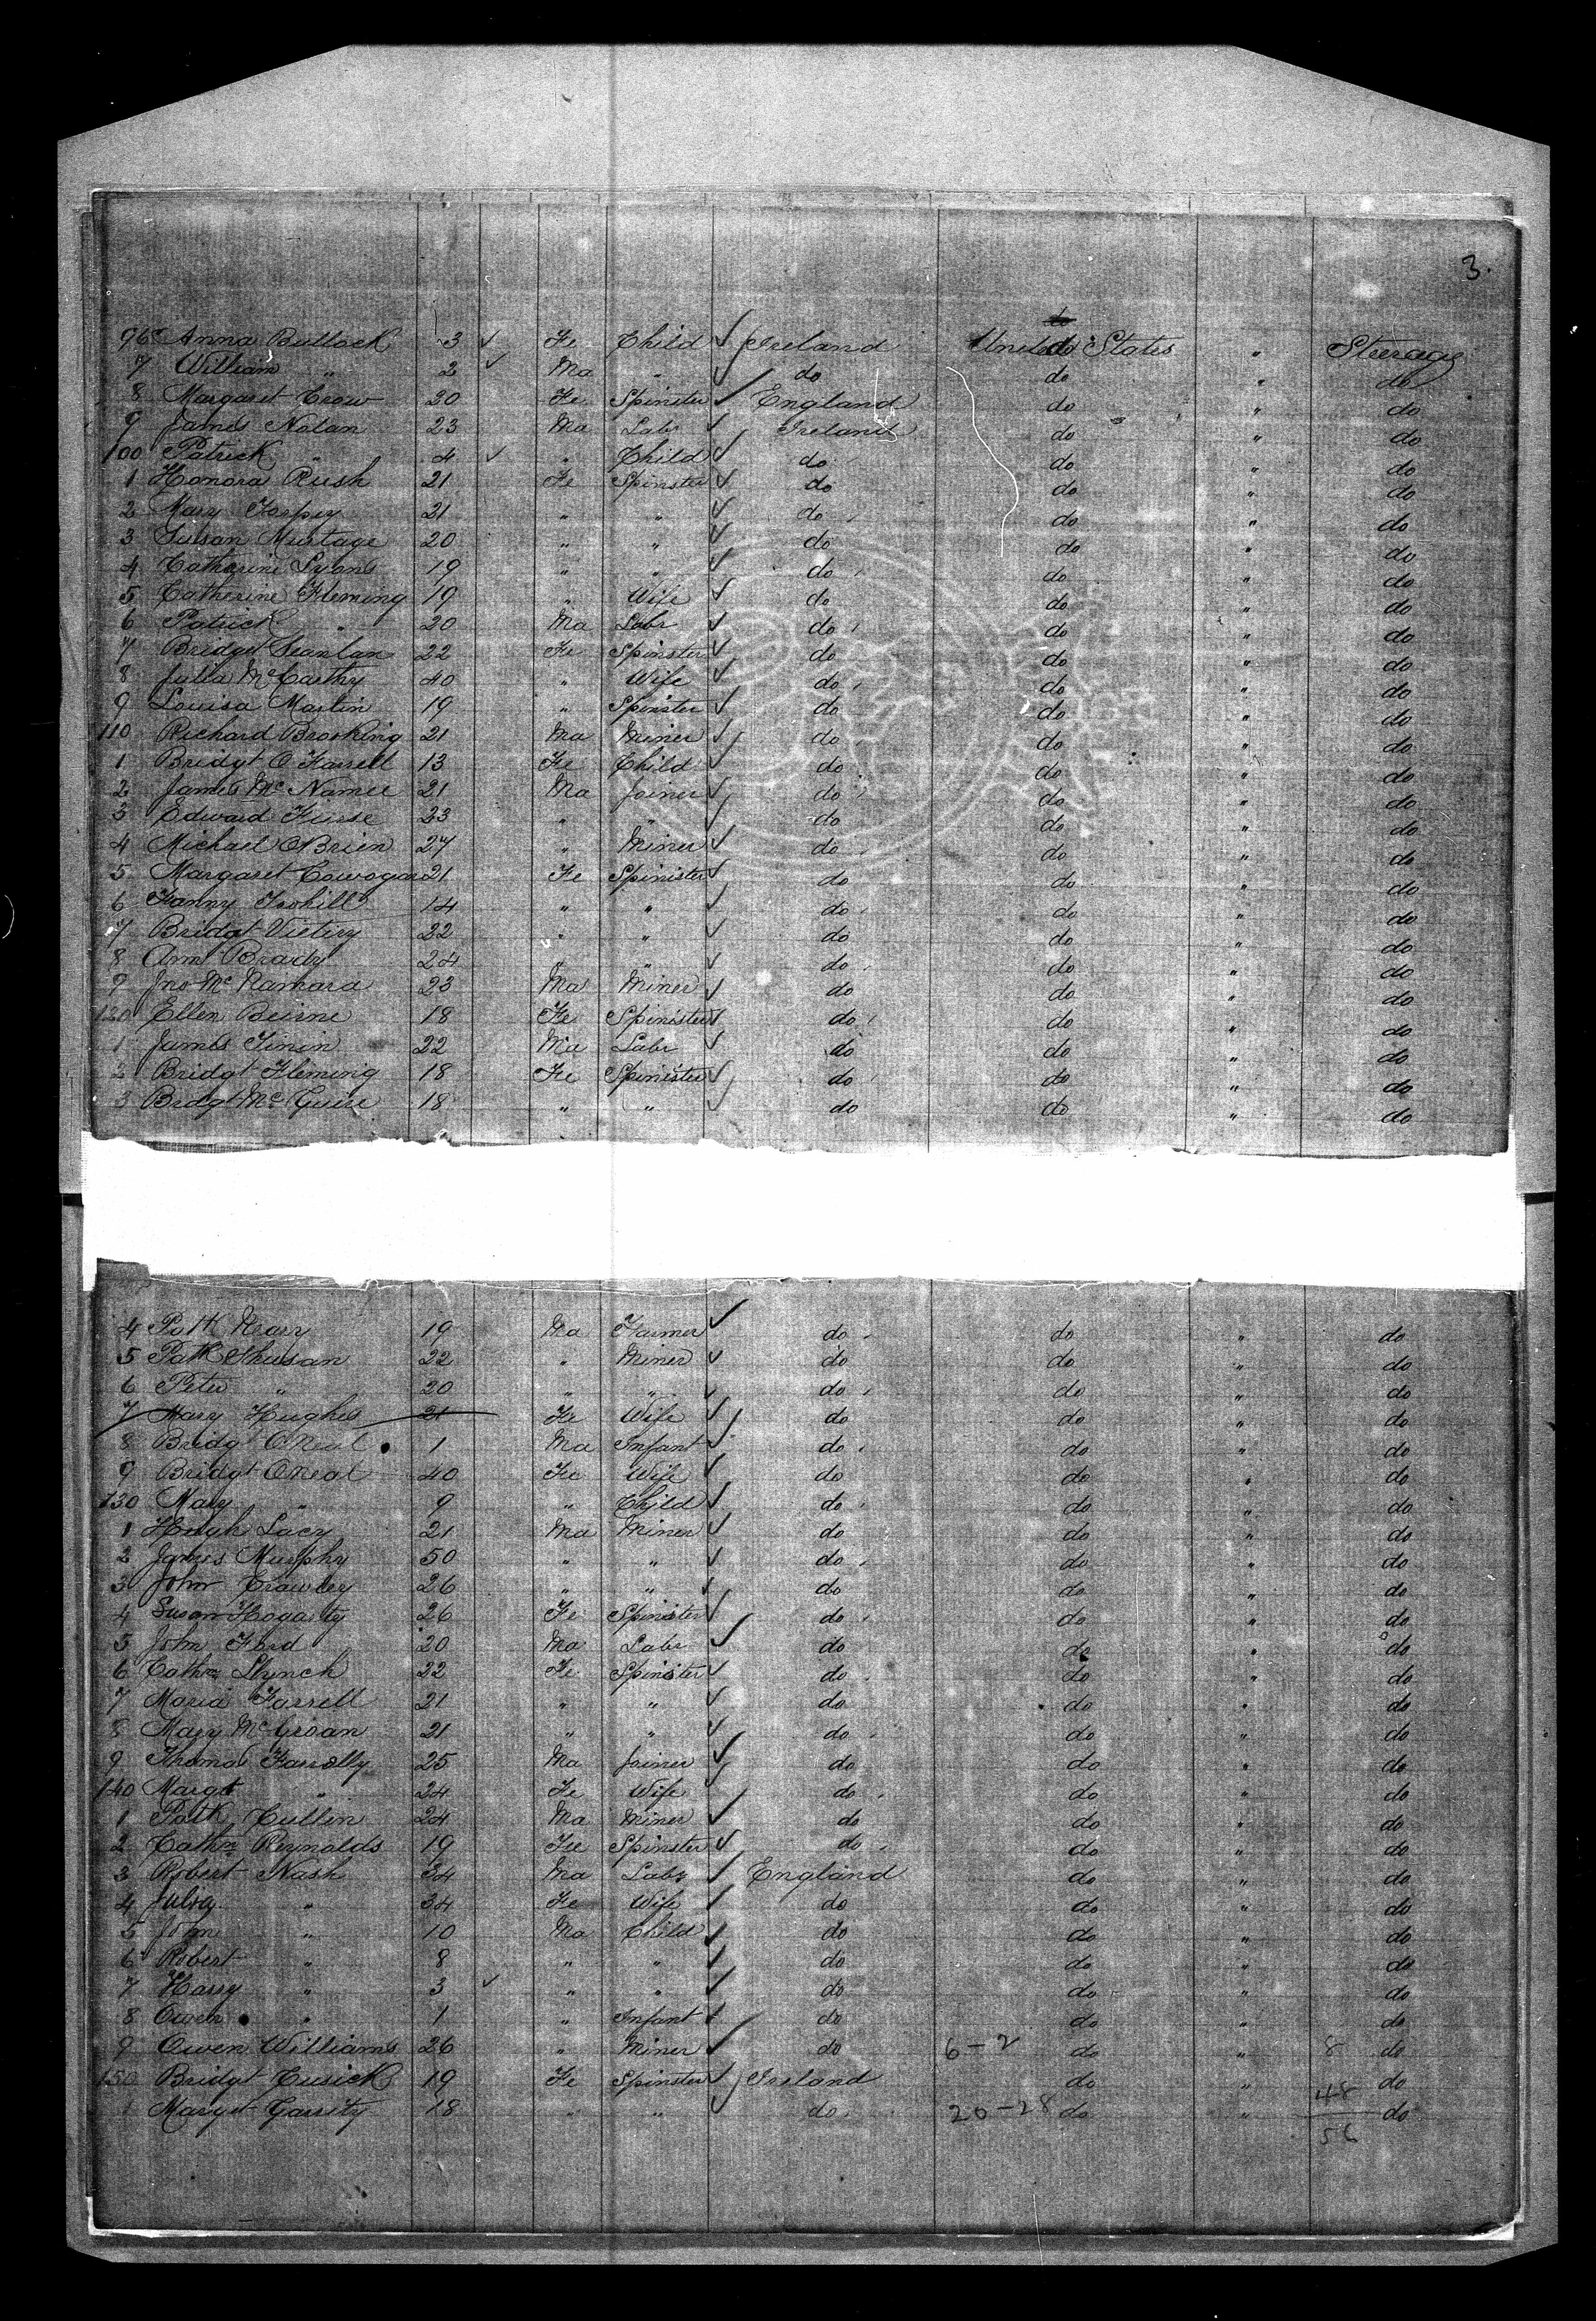 3.
do
96 Anna Bullock 3 ✓ Fe Child ✓ Ireland United States " Steerage
7 William " 2 ✓ Ma " ✓ do do " do
8 Margaret Crow 20 Fe Spinster ✓ England do " do
9 James Nolan 23 Ma Labr ✓ Ireland do " do
100 Patrick " 4 ✓ " Child ✓ do do " do
1 Honora Rush 21 Fe Spinster ✓ do do " do
2 Mary 21 " " ✓ do do " do
3 Susan 20 " " ✓ do do " do
4 Catherine Lyons 19 " " ✓ do do " do
5 Catherine Fleming 19 " Wife ✓ do do " do
6 Patrick " 20 Ma Labr ✓ do do " do
7 Bridget Scanlan 22 Fe Spinster ✓ do do " do
8 Julia McCarthy 40 " Wife ✓ do do " do
9 Louisa Martin 19 " Spinster ✓ do do " do
110 Richard Brooking 21 Ma Miner ✓ do do " do
1 Bridgt O Farrell 13 Fe Child ✓ do do " do
2 James McNamee 21 Ma Joiner ✓ do do " do
3 Edward Furse 23 " " ✓ do do " do
4 Michael OBrien 27 " Miner ✓ do do " do
5 Margaret 21 Fe Spinister ✓ do do " do
6 Fanny 14 " " ✓ do do " do
7 Bridgt 22 " " ✓ do do " do
8 Ann Brady 24 " " ✓ do do " do
9 Jno McNamara 23 Ma Miner ✓ do do " do
120 Ellen Beirne 18 Fe Spinister ✓ do do " do
1 James Finin 22 Ma Labr ✓ do do " do
2 Bridgt Fleming 18 Fe Spinister ✓ do do " do
3 Bridgt McGuire 18 " " ✓ do do " do
4 Patk Neary 19 Ma Farmer ✓ do do " do
5 Patk 22 " Miner ✓ do do " do
6 Peter " 20 " " ✓ do do " do
7 Mary Hughes 21 Fe Wife ✓ do do " do
8 Bridgt ONeal 1 Ma Infant ✓ do do " do
9 Bridgt ONeal 40 Fe Wife ✓ do do " do
130 Mary " 9 " Child ✓ do do " do
1 Hugh Lacy 21 Ma Miner ✓ do do " do
2 James Murphy 50 " " ✓ do do " do
3 John Crawley 26 " " ✓ do do " do
4 Susan Hogarty 26 Fe Spinister ✓ do do " do
5 John Ford 20 Ma Labr ✓ do do " do
6 Cathn Lynch 22 Fe Spinister ✓ do do " do
7 Maria Farrell 21 " " ✓ do do " do
8 Mary McGroan 21 " " ✓ do do " do
9 Thomas Farrolly 25 Ma Joiner ✓ do do " do
140 Margt " 24 Fe Wife ✓ do do " do
1 Patk Cullin 24 Ma Miner ✓ do do " do
2 Cathn Reynolds 19 Fe Spinster ✓ do do " do
3 Robert Nash 34 Ma Labr ✓ England do " do
4 Julia " 34 Fe Wife ✓ do do " do
5 John " 10 Ma Child ✓ do do " do
6 Robert " 8 " " ✓ do do " do
7 Harry " 3 ✓ " " ✓ do do " do
8 Owen " 1 " Infant ✓ do do " do
9 Owen Williams 26 " Miner ✓ do 6-2 do " 8 do
150 Bridgt Cusick 19 Fe Spinster ✓ Ireland do " do
48
1 Margt Garrity 18 " " ✓ do 20-28 do " do
56